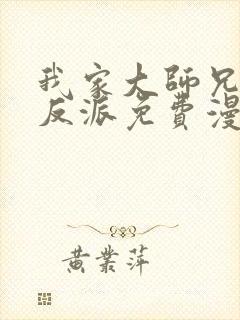 我家大師兄
反派免費漫
黄業萍